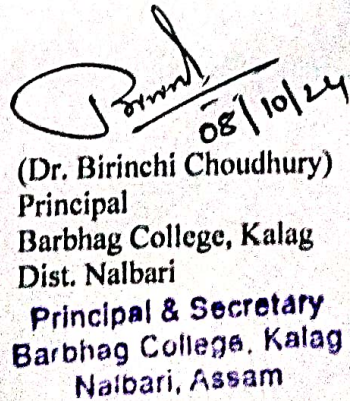 08/10/24
(Dr. Birinchi Choudhury)
Principal
Barbhag College, Kalag
Dist. Nalbari
Principal & Secretary
Barbhag College, Kalag
Nalbari, Assam